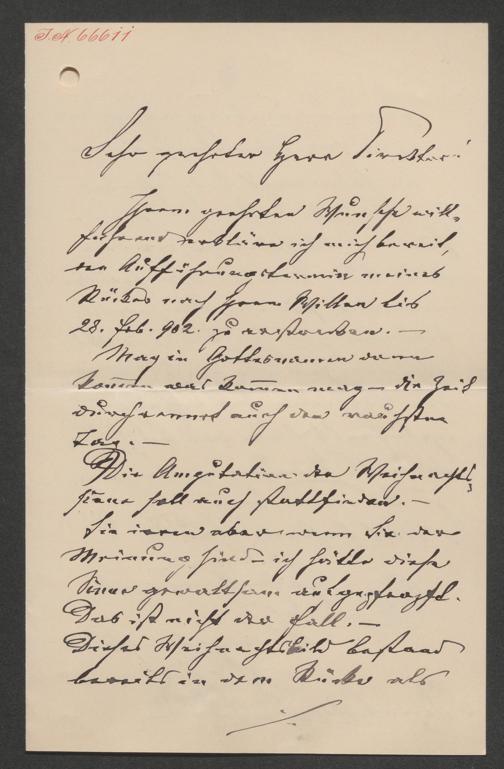 I. N 66611
Sehr geehrter Herr Direktor!
Ihrem geehrten Wunsche will-
fahrend erkläre ich mich bereit,
den Aufführungstermin meines
Stückes nach Ihrem Willen bis
28. Feb. 902. zu erstrecken. —
Mag in Gottesnamen dann
kom̄en was kom̄en mag – die Zeit
durchrennt auch den rauhsten
Tag. —
Die Amputation der Weihnachts-
szene soll auch stattfinden. —
Sie irren aber wenn Sie der
Meinung sind – ich hätte diese
Szene gewaltsam aufgepfropft.
Das ist nicht der Fall. —
Dieses Weihnachtsbild bestand
bereits in dem Stücke als